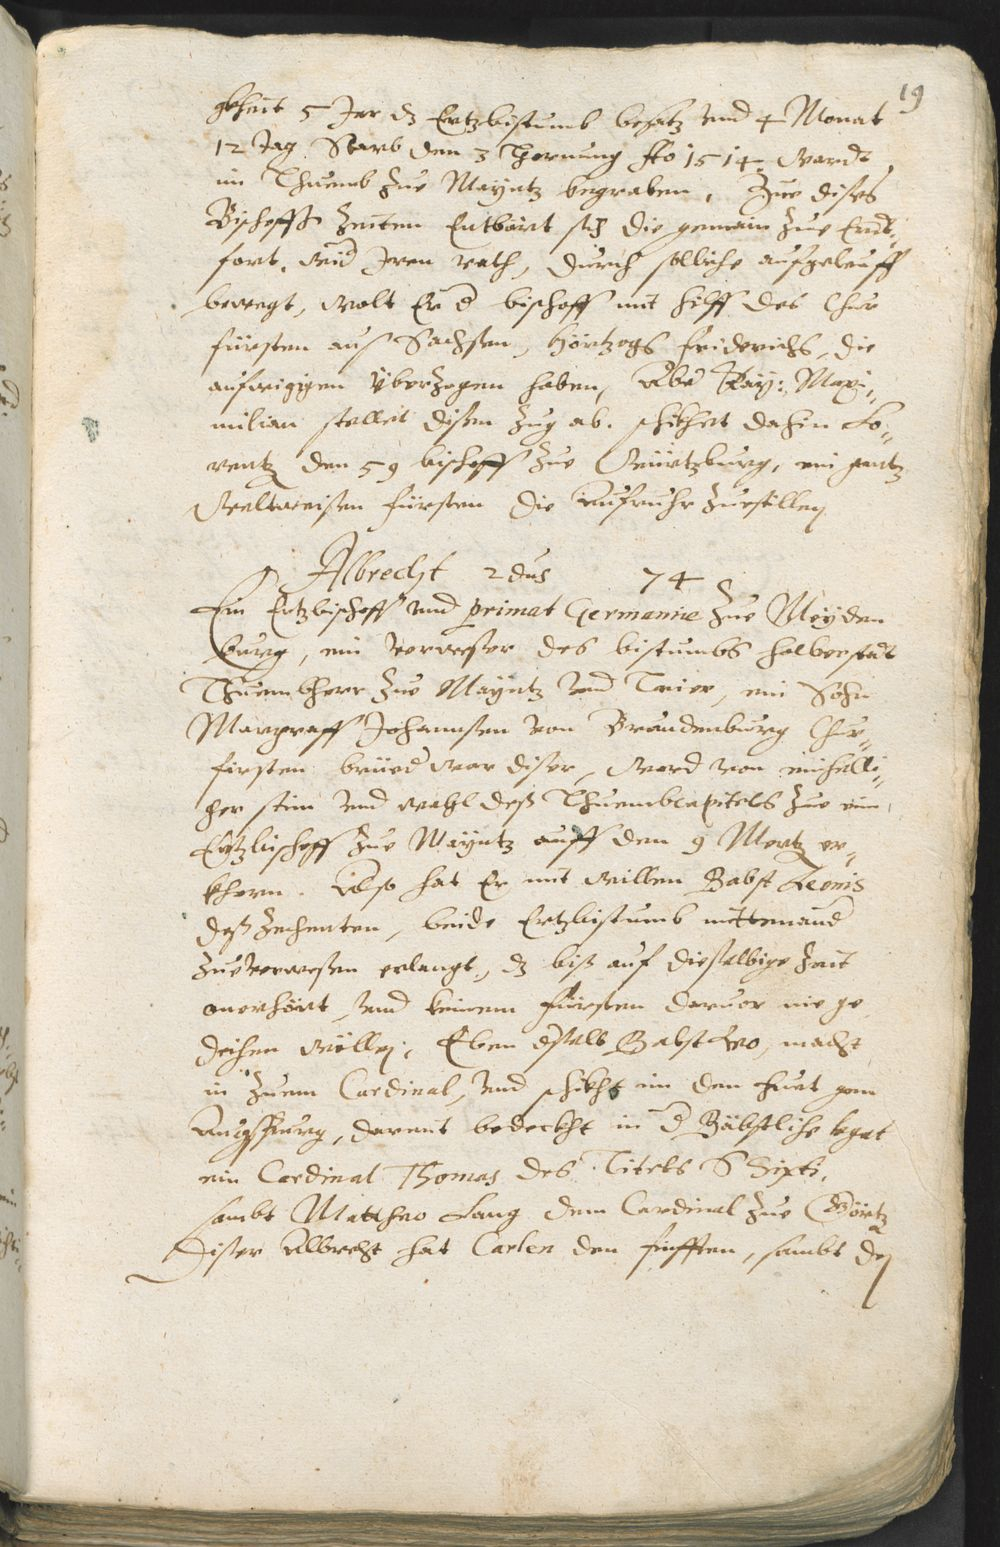 19
5 Jar dz Ertzbistumb besatz und 4 Monat
12 tag Starb den 3 Hornung Ao 1514. Wardt
im Thuemb zue Mayntz begraben. Zue dises
Bischoffs Zeiten Entbört sich die gemain zue Erdt-
fort, wid Iren rath, durch solliche aufgeleuff
bewegt, wolt Er d bischoff mit hilff des Chur
fürsten auß Sachsen, Hörtzogs Friderichs, die
aufruigigen Überzogen haben, Aber Kay: Maxi-
milian stellet disen Zug ab. schikhet dahin Lo-
rentz den 59 bischoff zue Würtzburg, ein gantz
Weltweisen fürsten die Aufruhr zuestillen
Albrecht 2dus 74
Ein Ertzbischoff und primat Germaniæ zue Meyden
burg, ein verweser des bistumbs halberstat
Thuembherr zue Mayntz und Trier, ein Sohn
Marggraff Johannsen von Brandenburg Chur-
firsten brüed war diser, Ward von einhelli-
ger stim und wahl deß Thuembcapitels zue eim
Ertzbischoff zue Mayntz auff den 9 Mertz er-
khorn. Also hat Er mit willen Babst Leonis
deß Zehenten, beide Ertzbistumb mittenand
zueverwesen erlangt, dz biß auf dieselbige Zeit
unerhört und keinem fürsten darvor nie ge
deihen wöllen. Eben dselb Babst Leo, macht
in zuem Cardinal, und schikht im den huet gen
Augspurg, darmit bedeckht in d Bäbstliche legat
ein Cardinal Thomas des Titels S Sixti,
sambt Mattheo Lang dem Cardinal zue Görtz
Diser Albrecht hat Carlen den finfften, sambt den